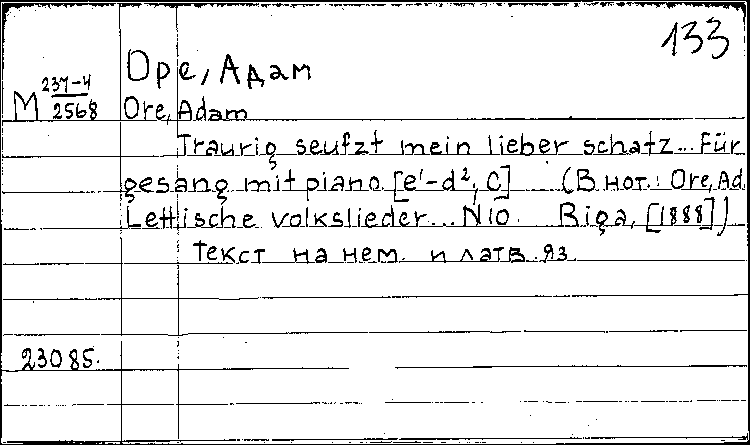 133
Оре, Адам
М 237-4/2568
Ore, Adam
Traurig seufzt mein lieber schatz... Für
gesang mit piano. [e'-d², C] (В нот.: Ore, Ad.
Lettische volkslieder... N10. Riga, [1888])
Текст на нем. и латв. яз.
23085.